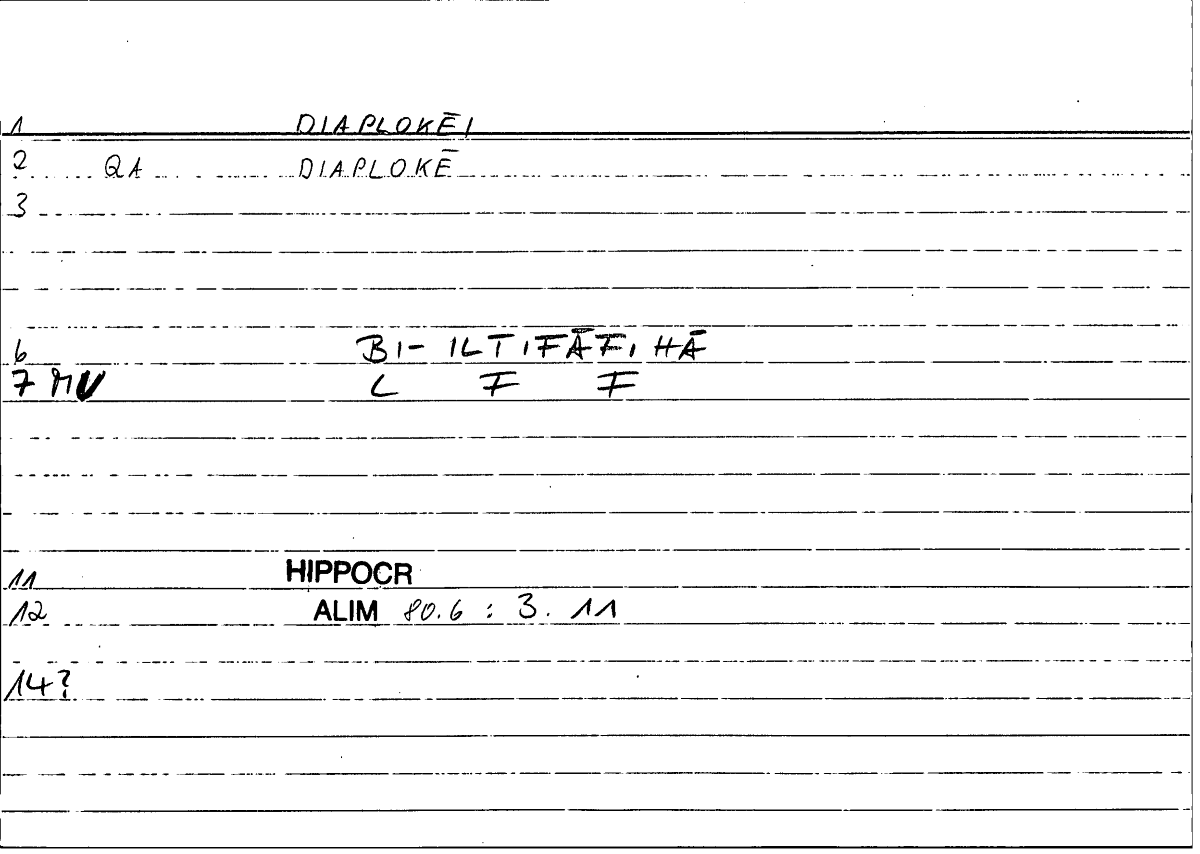 1 DIAPLOKĒI
2 QA DIAPLOKĒ
3
6 BI- ILTIFĀFI HĀ
7 MV L F F
11 HIPPOCR
12 ALIM 80.6 : 3. 11
14?